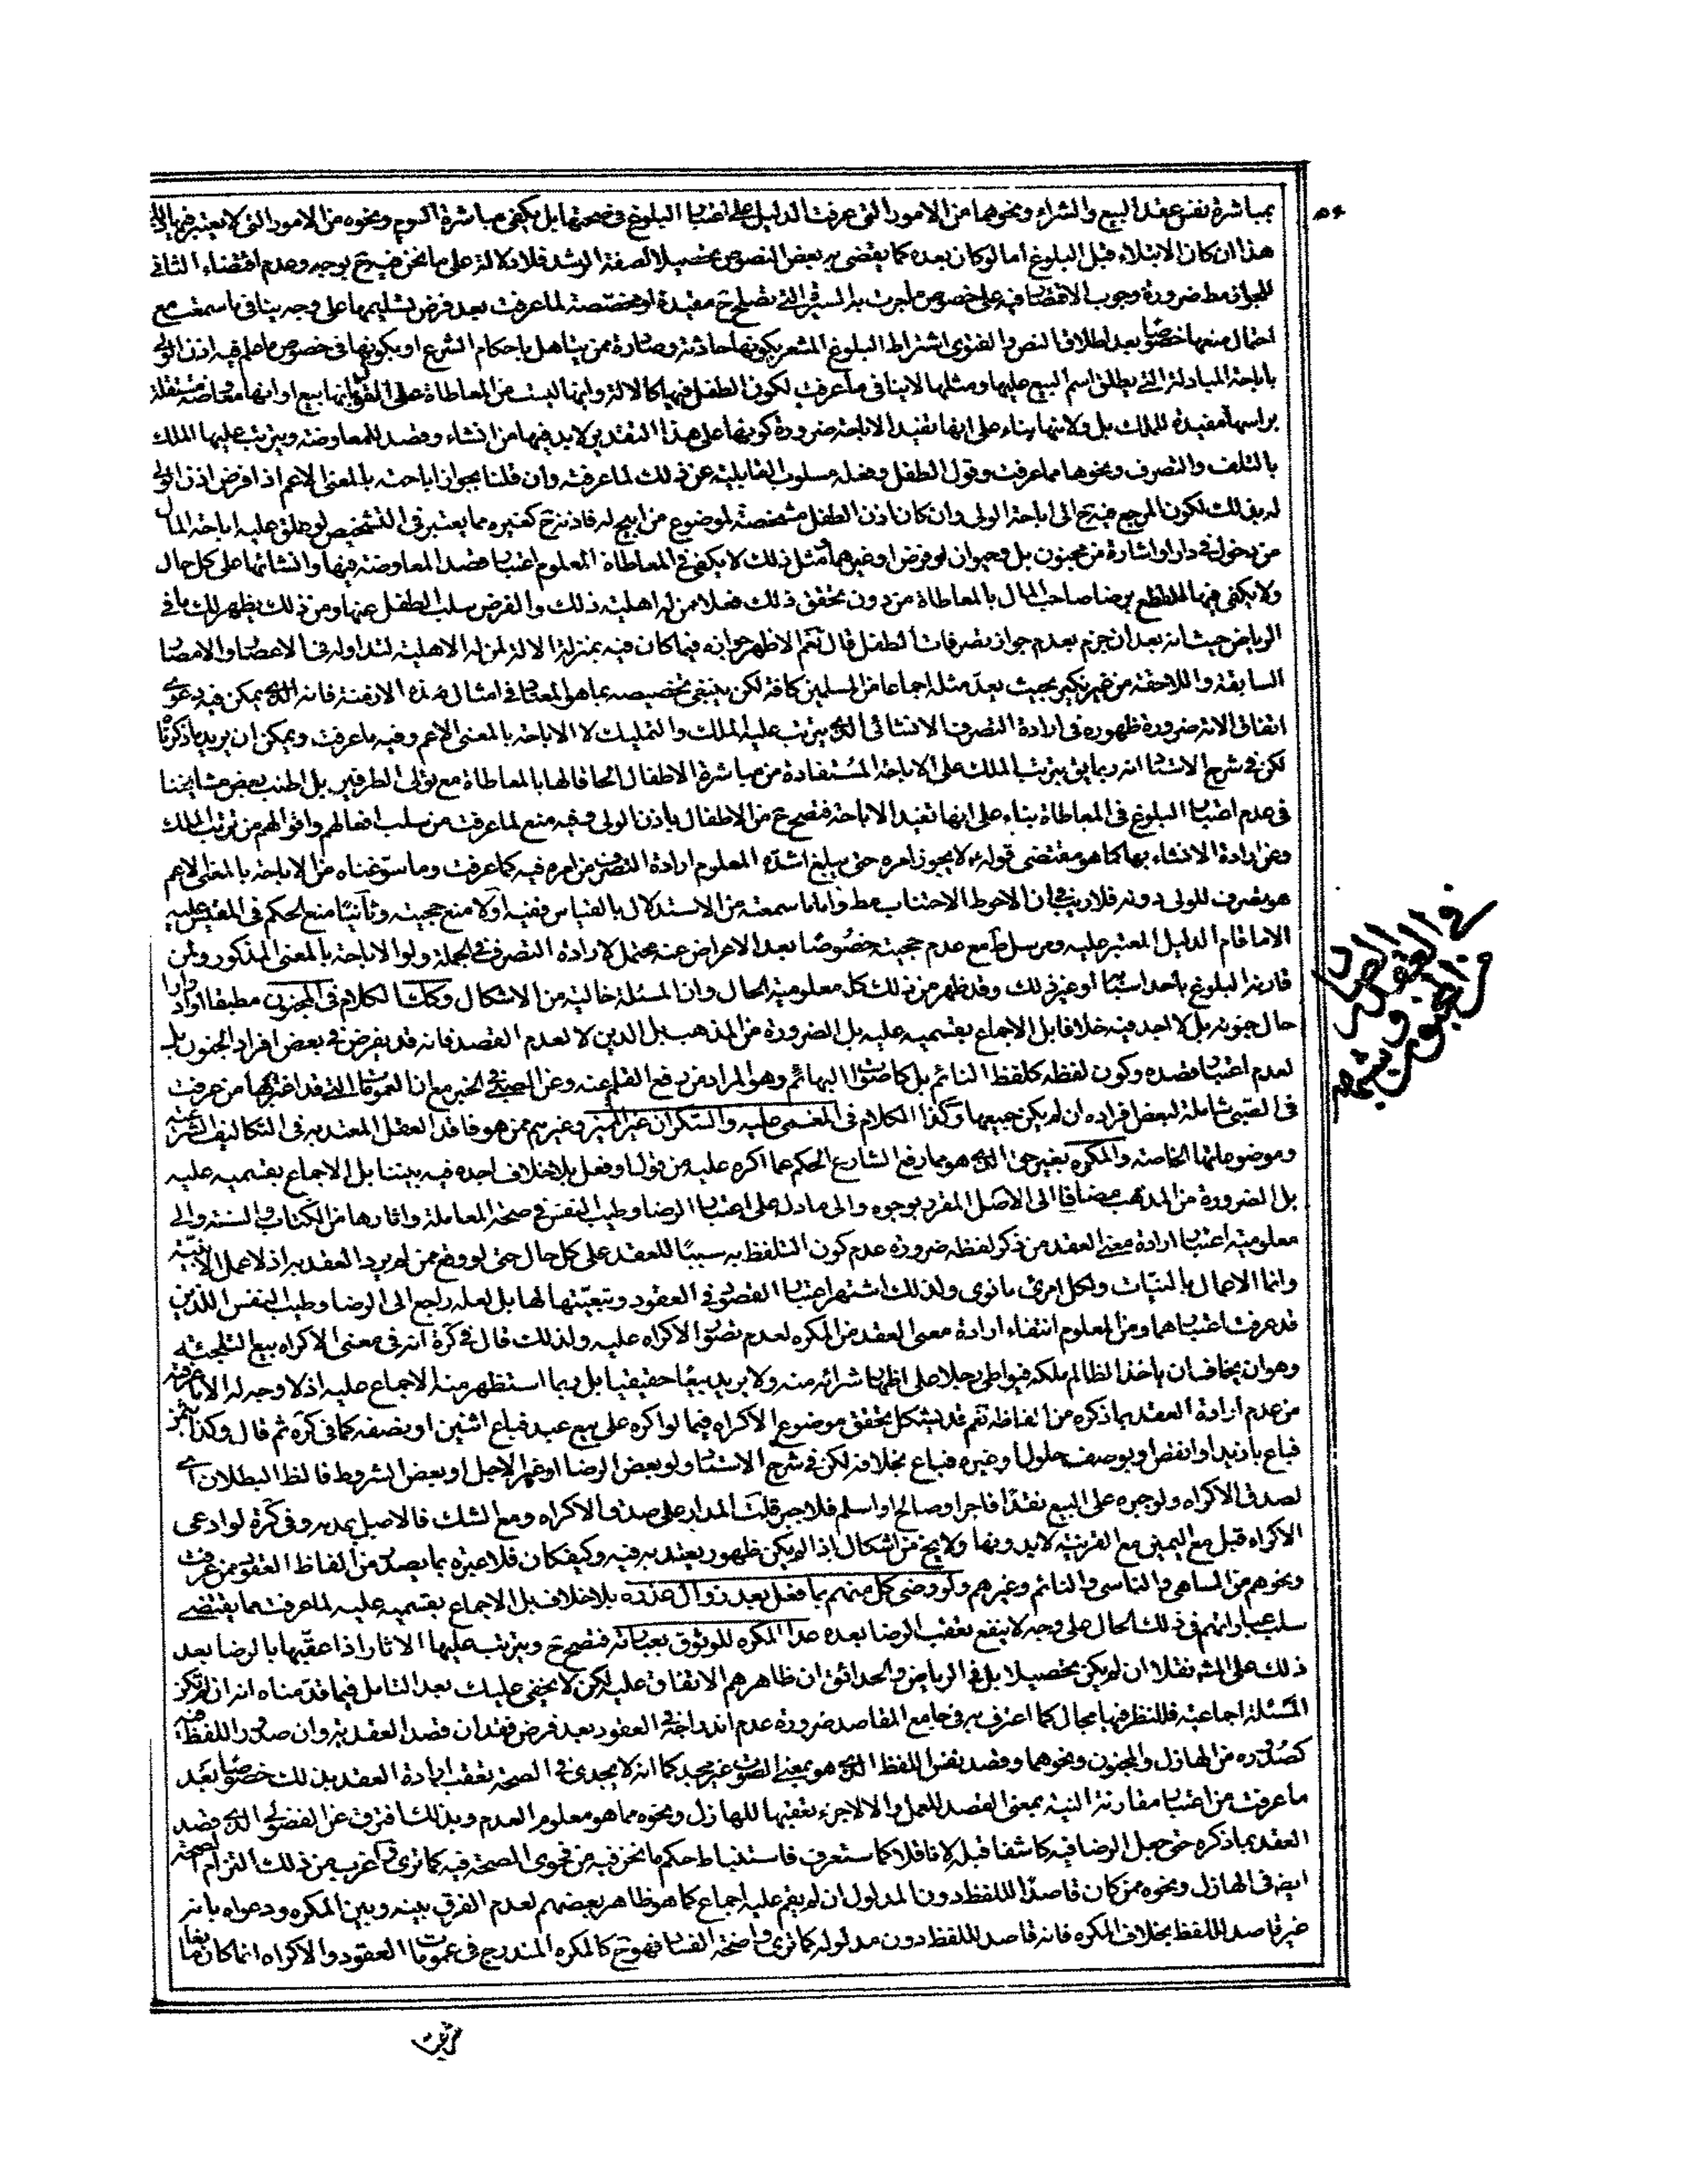 بمباشرة نفس عقد البيع والشراء ونحوهما من الامور التي عرفت الدليل على اعتبا البلوغ في صحتها بل يكفي مباشرة السوم ونحوه من الامور التي لا يعتبر فيها
هذا ان كان الابتلاء قبل البلوغ أما لو كان بعده كما يقضي به بعض النصوص تحصيلا لصفة الرشد فلا دلالة على ما نحن فيه ح بوجه وعدم اقتضاء الثاني
للجواز مط ضرورة وجوب الاقتصا فيه على خصوص ما جرت به السيرة التي تصلح ح مقيدة او مخصصة لما عرفت بعد فرض تسليمها على وجه ينافي ما سمعت مع
احتمال منعها خصوصا بعد اطلاق النص والفتوى اشتراط البلوغ المشعر بكونها حادثة وصادرة ممن يتساهل باحكام الشرع او بكونها في خصوص ما علم فيه اذن الولي
باباحة المبادلة التي يطلق اسم البيع عليها ومثلها لا ينافي ما عرفت لكون الطفل فيها كالآلة وانها ليست من المعاطاة على القول بانها بيع او انها معاوضة مستقلة
براسها مفيدة للملك بل ولا منها بناء على انها تفيد الاباحة ضرورة كونها على هذا التقدير لابد فيها من انشاء وقصد للمعاوضة ويترتب عليها الملك
بالتلف والتصرف ونحوهما مما عرفت وقول الطفل وفعله مسلوب القابلية عن ذلك لما عرفت وان قلنا بجواز اباحته بالمعنى الاعم اذا فرض اذن الولي
له بذلك لكون المرجع فيه ح الى اباحة الولي وان كان اذن الطفل مشخصة لموضوع من ابيح له فاذنه ح كغيره مما يعتبر في التشخيص لو علق عليه اباحة المال
من دخول في دار او اشارة من مجنون بل وحيوان لو فرض او غيرهما مثل ذلك لا يكفي في المعاطاة المعلوم اعتبا قصد المعاوضة فيها وانشائها على كل حال
ولا يكفي فيها القطع برضا صاحب المال بالمعاطاة من دون تحقق ذلك فعلا ممن له اهلية ذلك والفرض سلب الطفل عنها ومن ذلك يظهر لك ما في
الرياض حيث انه بعد ان جزم بعدم جواز تصرفات الطفل قال نعم الاظهر جوازه فيما كان فيه بمنزلة الالة لمن له الاهلية لتداوله في الاعصا والامصا
السابقة واللاحقة من غير نكير بحيث يعد مثله اجماعا من المسلمين كافة لكن ينبغي تخصيصه بما هو المعتا في امثال هذه الازمنة فانه الذي يمكن فيه دعوى
اتفاق الامة ضرورة ظهوره في ارادة التصرف الانشائي الذي يترتب عليه الملك والتمليك لا الاباحة بالمعنى الاعم وفيه ما عرفت ويمكن ان يريد ما ذكرنا
لكن في شرح الاستا انه ربما يق بترتب الملك على الاباحة المستفادة من مباشرة الاطفال الحاقا لها بالمعاطاة مع تولى الطرفين بل اطنب بعض مشايخنا
في عدم اعتبا البلوغ في المعاطاة بناء على انها تفيد الاباحة فتصح ح من الاطفال باذن الولي وفيه منع لما عرفت من سلب افعالهم واقوالهم من ترتب الملك
وعن ارادة الانشاء بها كما هو مقتضى قوله ع لا يجوز امره حتى يبلغ اشده المعلوم ارادة التصرف من امره فيه كما عرفت وما سوغناه من الاباحة بالمعنى الاعم
هو تصرف للولي دونه فلا ريب في ان الاحوط الاجتناب مط واما ما سمعته من الاستدلال بالقياس ففيه اولا منع حجيته وثانيا منع الحكم في المقيس عليه
الا ما قام الدليل المعتبر عليه ومرسل ط مع عدم حجيته خصوصا بعد الاعراض عنه محتمل لارادة التصرف في الجملة ولو الاباحة بالمعنى المذكور ولمن
قارنه البلوغ بأحد اسبا او غير ذلك وقد ظهر من ذلك كله معلومية الحال وان المسئلة خالية من الاشكال وكك الكلام في المجنون مطبقا او ادوارا
حال جنونه بل لا اجد فيه خلافا بل الاجماع بقسميه عليه بل الضرورة من المذهب بل الدين لا لعدم القصد فانه قد يفرض في بعض افراد الجنون بل
لعدم اعتبا قصده وكون لفظه كلفظ النائم بل كاصوا البهائم وهو المراد من رفع القلم عنه وعن الصبي في الخبر مع ان العموما التي قد اغتر بها من عرفت
في الصبي شاملة لبعض افراده ان لم يكن جميعها وكذا الكلام في المغمى عليه والسكران غير المميز وغيرهم ممن هو فاقد العقل المعتد به في التكاليف الشرعية
وموضوعاتها الخاصة والمكره بغير حق الذي هو مما رفع الشارع الحكم عما اكره عليه من قول وفعل بلا خلاف اجده فيه بيننا بل الاجماع بقسميه عليه
بل الضرورة من المذهب مضافا الى الاصل المقرر بوجوه والى ما دل على اعتبا الرضا وطيب النفس في صحة المعاملة واثارها من الكتاب والسنة والى
معلومية اعتبا ارادة معنى العقد من ذكر لفظه ضرورة عدم كون التلفظ به سببا للعقد على كل حال حتى لو وقع ممن لم يرد العقد به اذ لا عمل الا بنية
وانما الاعمال بالنيات ولكل امرئ ما نوى ولذلك اشتهر اعتبا القصو في العقود وتبعيتها لها بل لعله راجع الى الرضا وطيب النفس اللذين
قد عرفت اعتباهما ومن المعلوم انتفاء ارادة معنى العقد من المكره لعدم تصو الاكراه عليه ولذلك قال في كرة انه في معنى الاكراه بيع التلجئة
وهو ان يخاف ان ياخذ الظالم ملكه فيواطي رجلا على اظها شرائه منه ولا يريد بيعا حقيقيا بل ربما استظهر منه الاجماع عليه اذ لا وجه له الا ما عرفته
من عدم ارادة العقد بما ذكره من الفاظه نعم قد يشكل تحقق موضوع الاكراه فيما لو اكره على بيع عبد فباع اثنين او نصفه كما في كرة ثم قال وكذا بثمن
فباع بازيد او انقص او بوصف حلول او غيره فباع بخلافه لكن في شرح الاستا ولو بعض الرضا او غير الاجل او بعض الشروط فالظا البطلان اي
لصدق الاكراه ولو جبره على البيع نقدا فاجرا وصالح او اسلم فلا جبر قلت المدار على صدق الاكراه ومع الشك فالاصل عدمه وفي كرة لو ادعى
الاكراه قبل مع اليمين مع القرينة لا بدونها ولا يخ من اشكال اذا لم يكن ظهور يعتد به فيه وكيف كان فلا عبرة بما يصد من الفاظ العقو ممن عرفت
ونحوهم من الساهي والناسي والنائم وغيرهم ولو رضي كل منهم بما فعل بعد زوال عذره بلا خلاف بل الاجماع بقسميه عليه لما عرفت مما يقتضي
سلب عباراتهم في ذلك الحال على وجه لا ينفع تعقب الرضا بعده عدا المكره للوثوق بعباته فتصح ح ويترتب عليها الاثار اذا عقبها بالرضا بعد
ذلك على المشه نقلا ان لم يكن تحصيلا بل في الرياض والحدائق ان ظاهرهم الاتفاق عليه لكن لا يخفى عليك بعد التامل فيما قدمناه انه ان لم تكن
المسئلة اجماعية فللنظر فيها مجال كما اعترف به في جامع المقاصد ضرورة عدم اندراجه في العقود بعد فرض فقدان قصد العقدية وان صدور اللفظ فيه
كصدوره من الهازل والمجنون ونحوهما وقصد نفس اللفظ الذي هو بمعنى الصوت غير مجد كما انه لا يجدي في الصحة تعقب ارادة العقد بذلك خصوصا بعد
ما عرفت من اعتبا مقارنة النية بمعنى القصد للعمل والا لاجزء تعقبها للهازل ونحوه مما هو معلوم العدم وبذلك افترق عن الفضولي الذي قصد
العقد بما ذكره حتى جعل الرضا فيه كاشفا قبله لا ناقلا كما ستعرف فاستنباط حكم ما نحن فيه من فحوى الصحة فيه كما ترى واغرب من ذلك التزام الصحة
ايض في الهازل ونحوه ممن كان قاصدا للفظ دون المدلول ان لم يقم عليه اجماع كما هو ظاهر بعضهم لعدم الفرق بينه وبين المكره ودعواه بانه
غير قاصد للفظ بخلاف المكره فانه قاصد للفظ دون مدلوله كما ترى واضحة الفسا فهو ح كالمكره المندرج في عموما العقود والاكراه انما كان مانعا